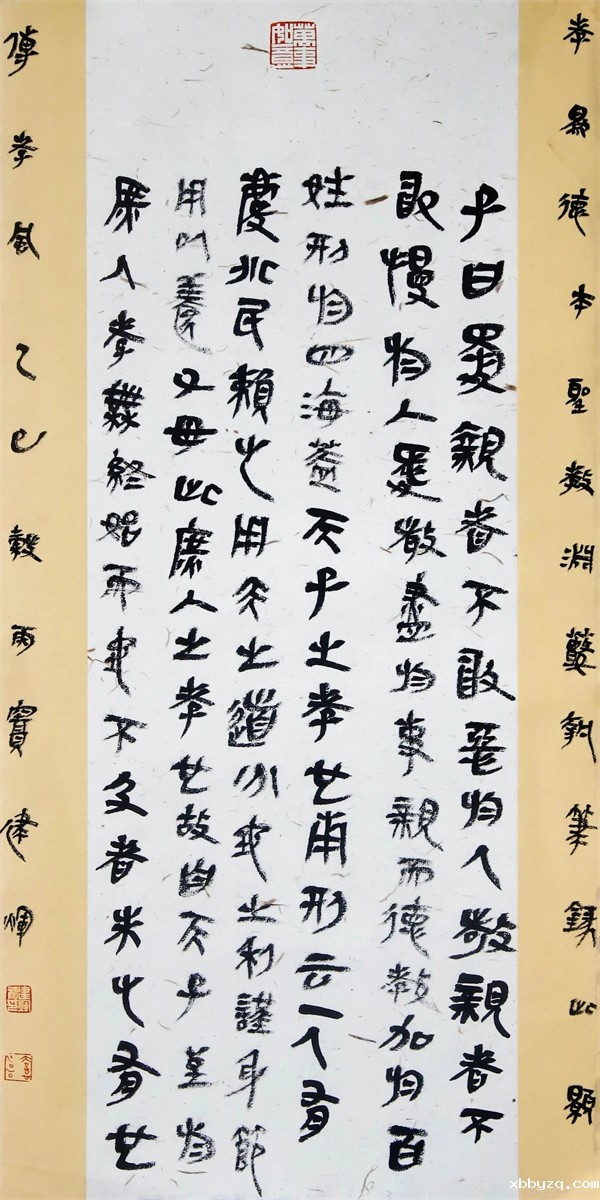 萬事如意
孝為德本聖教淵藪執筆錄此顯
子曰愛親者不敢惡於人敬親者不
敢慢於人愛敬盡於事親而德教加於百
姓形於四海蓋天子之孝也甫形云一人有
慶兆民賴之用天之道分地之利謹身節
用以養父母此庶人之孝也故自天子至於
庶人孝無終始而患不及者未之有也
傳孝風乙巳穀雨
xbbyzq.com